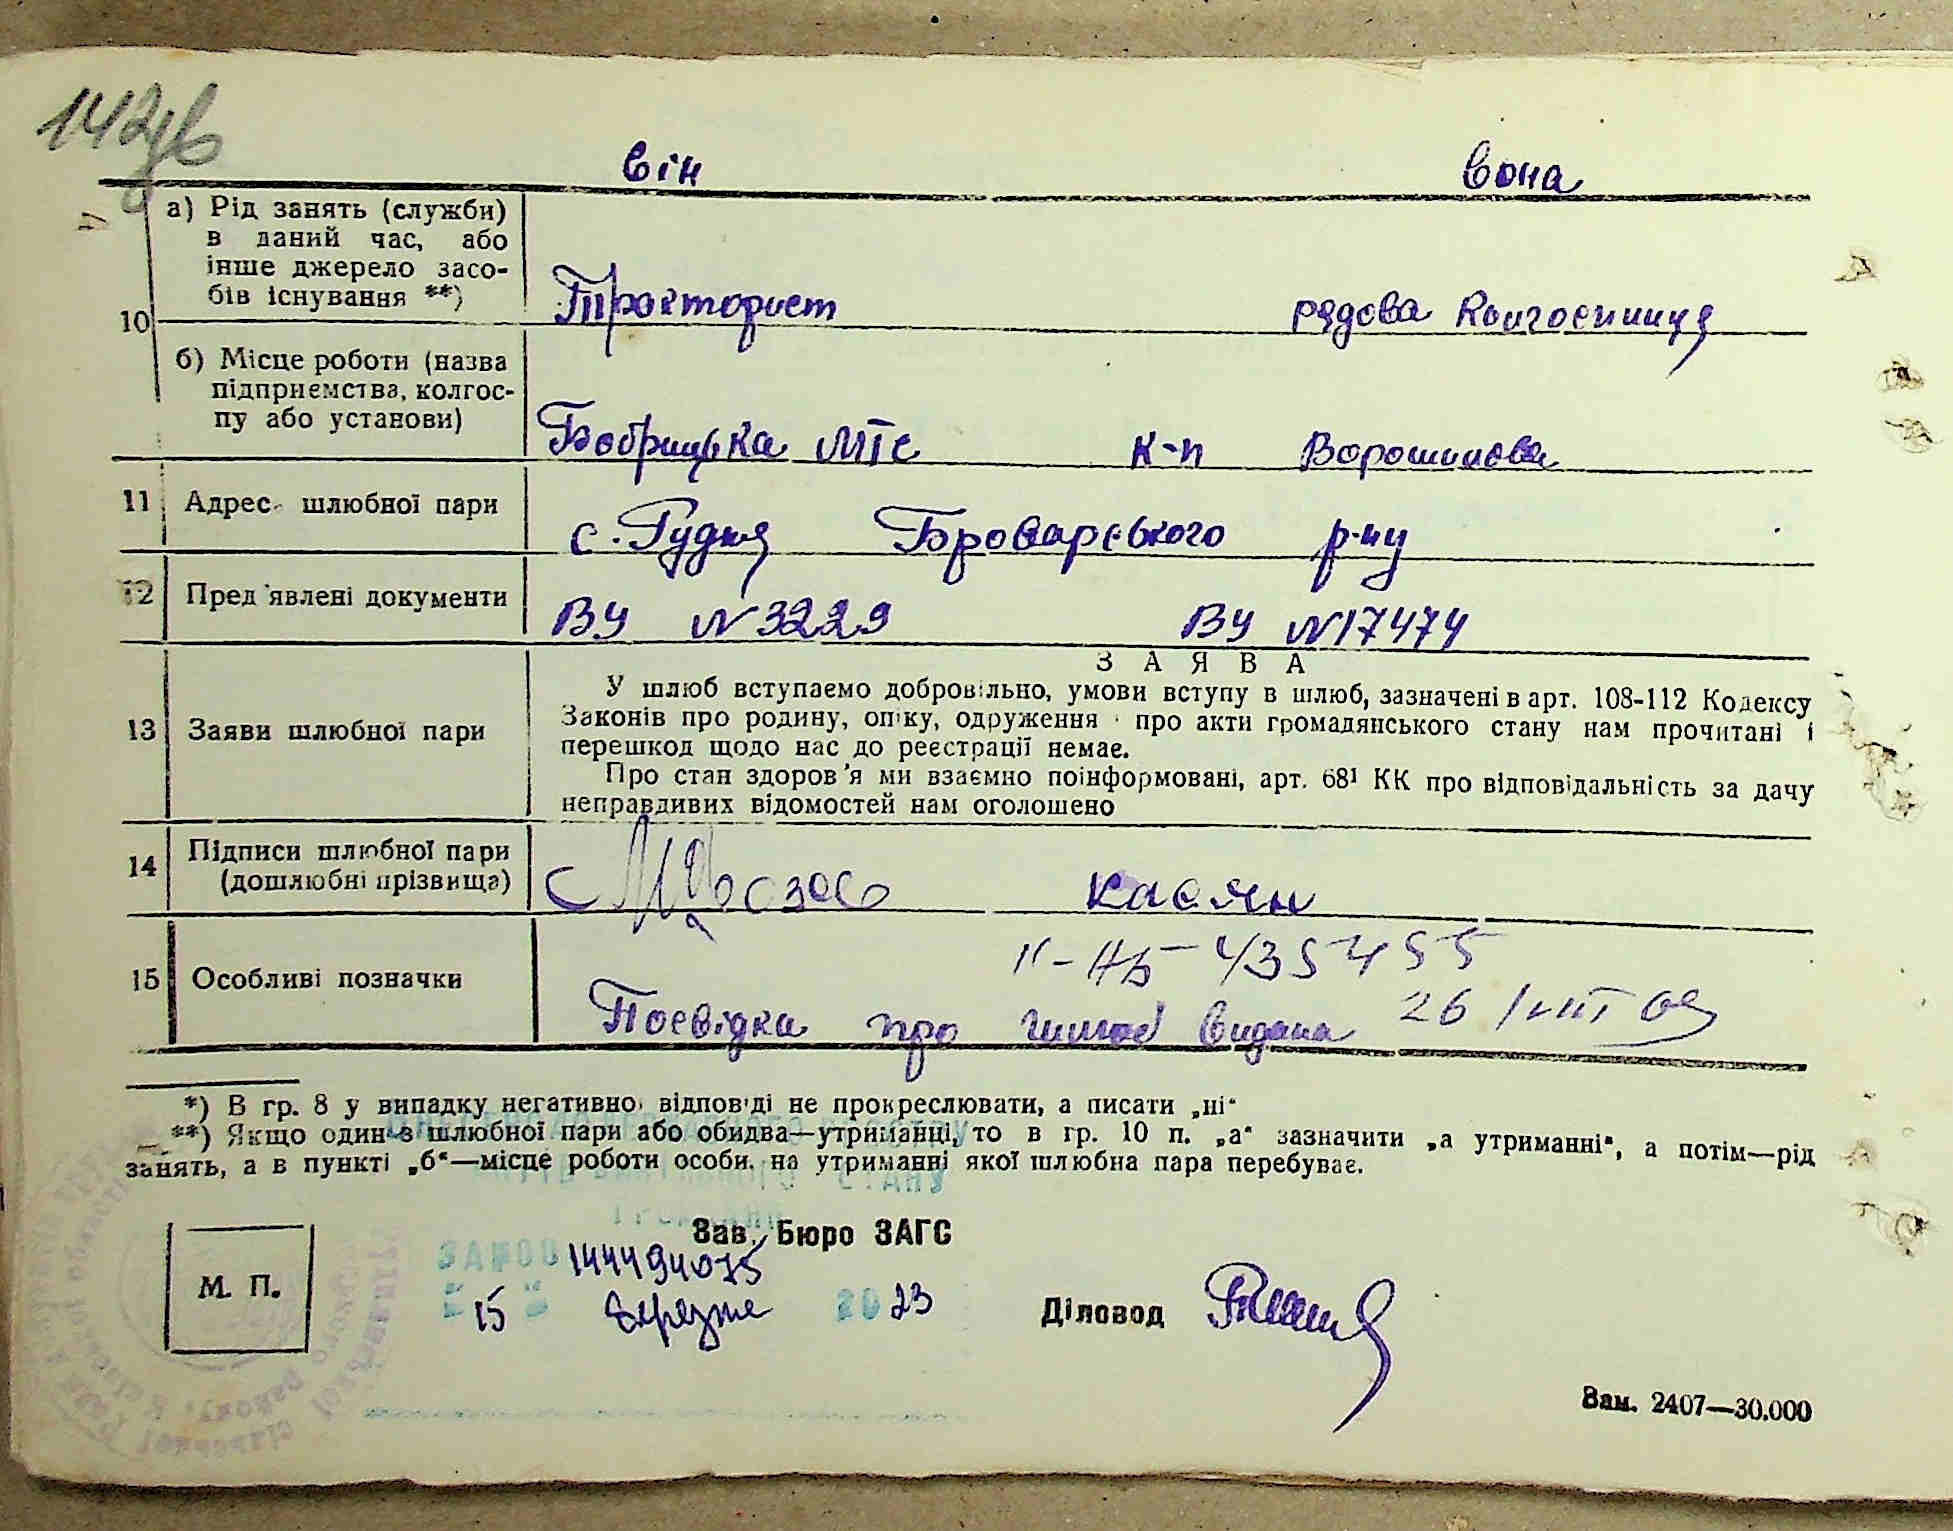 142зв
Він Вона
10
а) Рід занять (служби)
в даний час, або
інше джерело засо-
бів існування **)
Тракторист рядова колгоспниця
б) Місце роботи (назва
підприємства, колгос-
пу або установи)
Бобрицька МТС к-п Ворошилова
11 Адрес шлюбної пари
с. Рудня Броварського р-ну
12 Пред'явлені документи
ВУ №3229 ВУ №17474
13 Заяви шлюбної пари
ЗАЯВА
У шлюб вступаємо добровільно, умови вступу в шлюб, зазначені в арт. 108-112 Кодексу
Законів про родину, опіку, одруження і про акти громадянського стану нам прочитані і
перешкод щодо нас до реєстрації немає.
Про стан здоров'я ми взаємно поінформовані, арт. 68¹ КК про відповідальність за дачу
неправдивих відомостей нам оголошено
14 Підписи шлюбної пари
(дошлюбні прізвища)
Касян
15 Особливі позначки
ІІ-НБ 435455
Посвідка про шлюб видана
*) В гр. 8 у випадку негативної відповіді не прокреслювати, а писати „ні"
**) Якщо один з шлюбної пари або обидва—утриманці, то в гр. 10 п. „а" зазначити „а утриманні", а потім—рід
занять, а в пункті „б"—місце роботи особи, на утриманні якої шлюбна пара перебуває.
СТАНУ
ГРОМАДЯН
Зав. Бюро ЗАГС
144494075
15 березня 2023
М. П.
Діловод
Зам. 2407—30.000